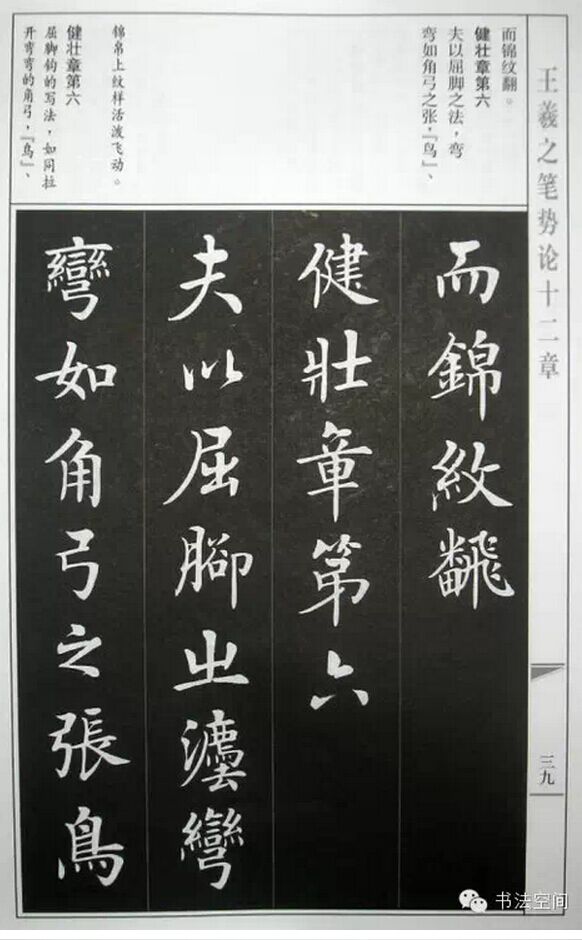 王羲之笔势论十二章
三九
而锦纹翻。
健壮章第六
夫以屈脚之法，弯
弯如角弓之张，『鸟』、
锦帛上纹样活泼飞动。
健壮章第六
屈脚钩的写法，如同拉
开弯弯的角弓，『鸟』、
而錦紋飜
健壯章第六
夫以屈腳之灋彎
彎如角弓之張鳥
书法空间